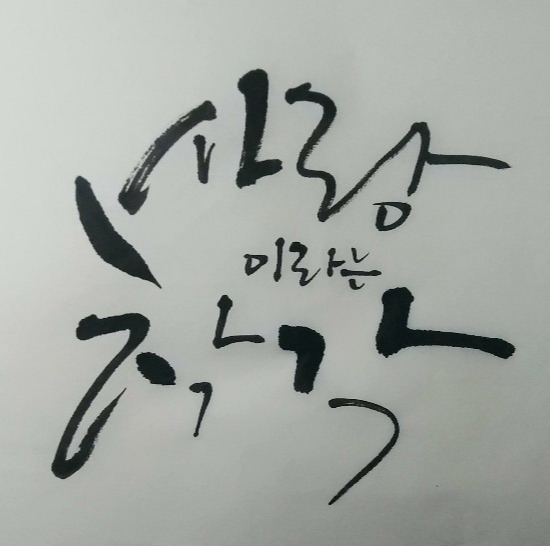 사랑
이라는
착각